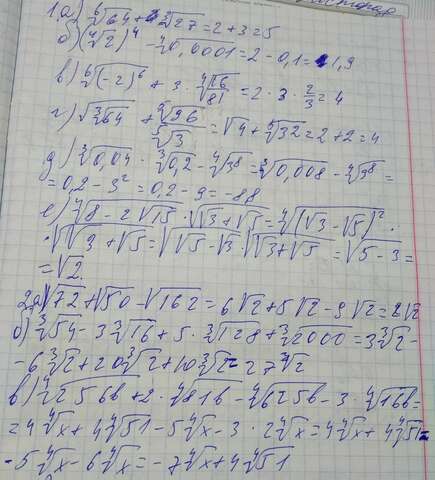 1.а) ⁶√64 + ³√27 = 2 + 3 = 5
б) (⁴√2)⁴ - ⁴√0,0001 = 2 - 0,1 = 1,9
в) ⁶√(-2)⁶ + 3 · ⁴√(16/81) = 2 · 3 · 2/3 = 4
г) √∛64 + ⁵√96/⁵√3 = √4 + ⁵√32 = 2 + 2 = 4
д) ³√0,04 · ³√0,2 - ⁴√3⁸ = ³√0,008 - ⁴√3⁸ =
= 0,2 - 3² = 0,2 - 9 = -88
е) ⁴√8 - 2√15 · √√3 + √5 = ⁴√(√3 - √5)² ·
· √√3 + √5 = √√5 - √3 · √√3 + √5 = √5 - 3 =
= √2.
2.а) √72 + √50 - √162 = 6√2 + 5√2 - 9√2 = 2√2
б) ³√54 - 3 ³√16 + 5 · ³√128 + ³√2000 = 3 ³√2 -
- 6 ³√2 + 20 ³√2 + 10 ³√2 = 27 ³√2
в) ⁴√256b + 2 · ⁴√816 - ⁴√625b - 3 · ⁴√16b =
= 4 ⁴√x + 4 ⁴√51 - 5 ⁴√x - 3 · 2 ⁴√x = 4 ⁴√x + 4 ⁴√51 -
- 5 ⁴√x - 6 ⁴√x = -7 ⁴√x + 4 ⁴√51